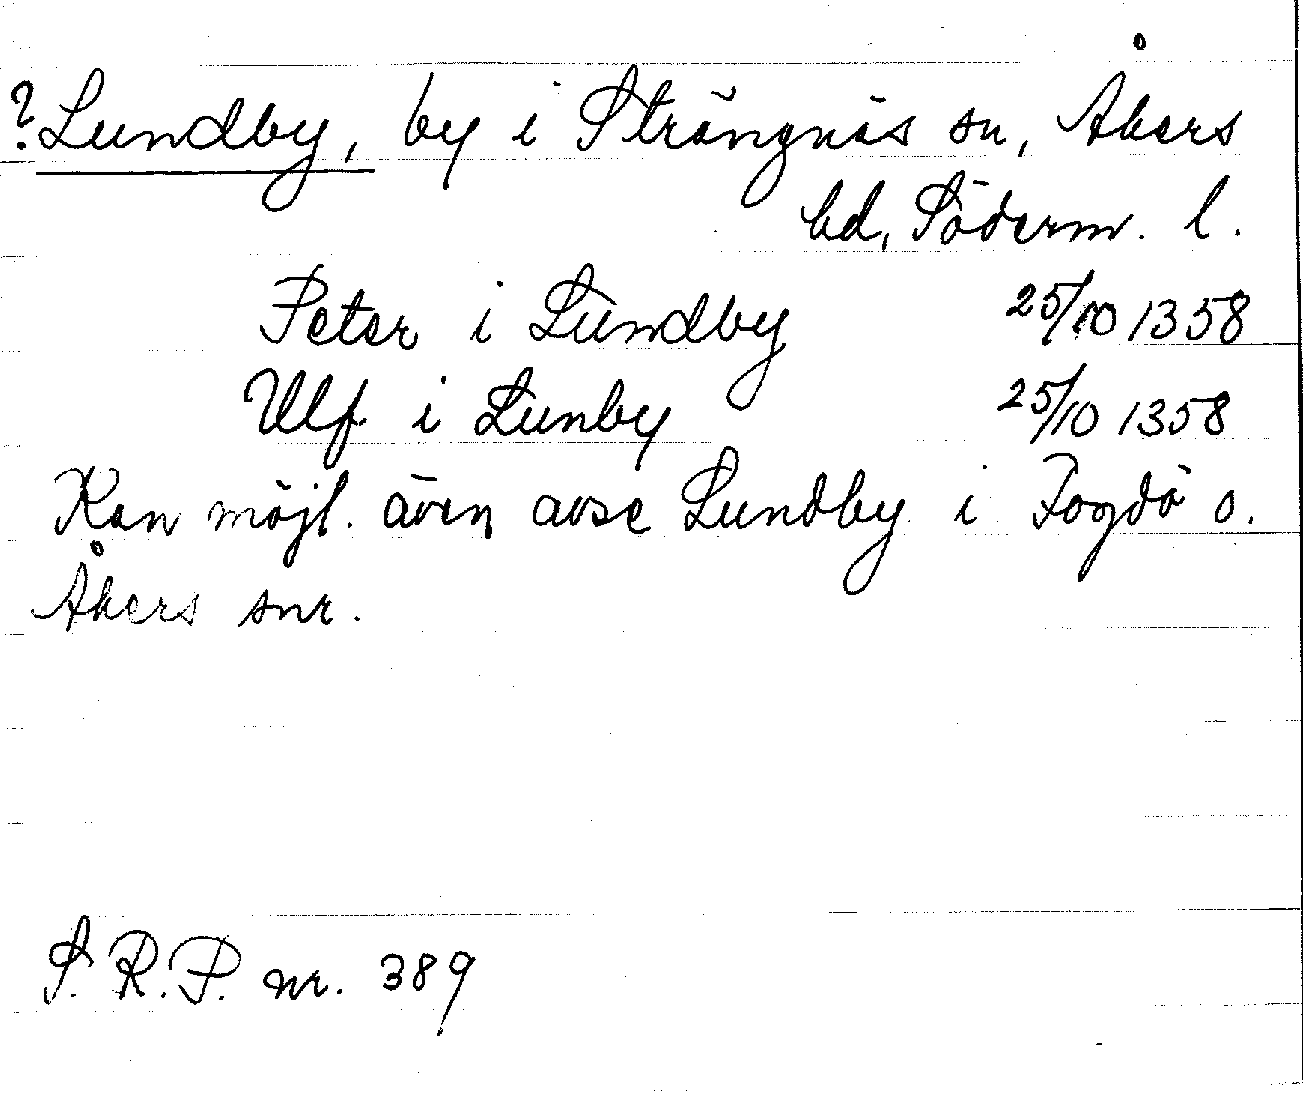 ? Lundby, by i Strängnäs sn, Åkers
hd, Söderm. l.
Peter i Lundby 25/10 1358
Ulf i Lunby 25/10 1358
Kan möjl. även avse Lundby i Fogdö o.
Åkers snr.
S. R. P. nr. 389